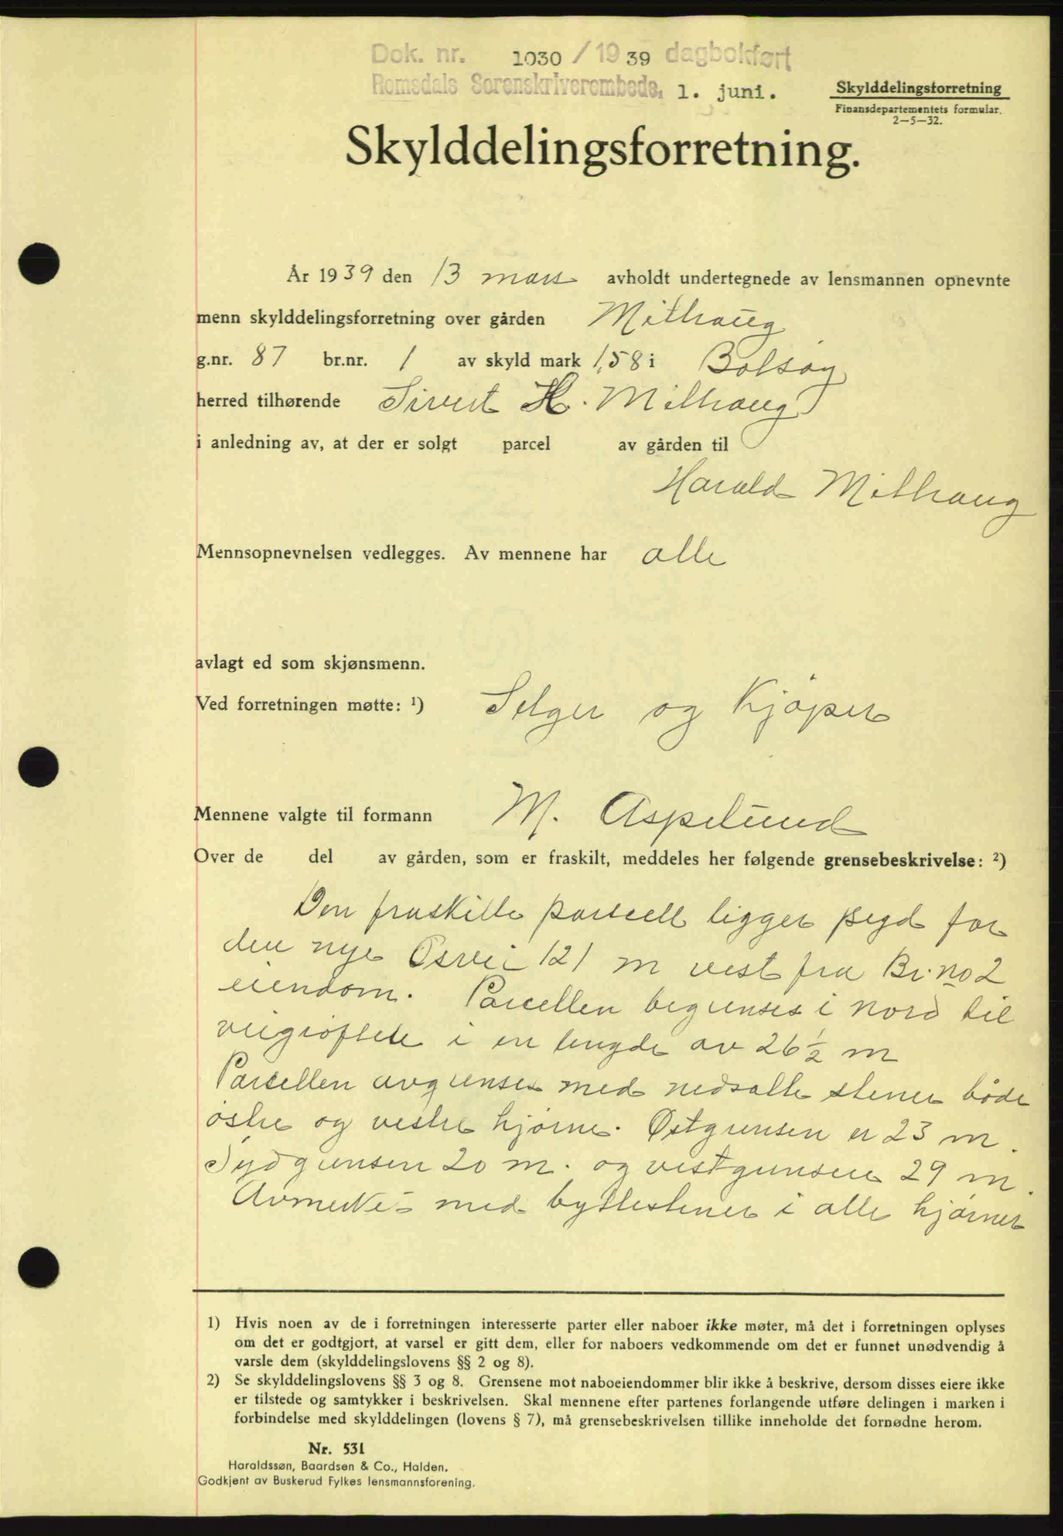 Dok. nr. 1030 / 1939 dagbokført
Romsdals Sorenskriverembede, 1. juni.
Skylddelingsforretning
Finansdepartementets formular.
2—5—32.
Skylddelingsforretning.
År 1939 den 13 mars avholdt undertegnede av lensmannen opnevnte
menn skylddelingsforretning over gården Mithaug
g.nr. 87 br.nr. 1 av skyld mark 1,58 i Bolsøy
herred tilhørende Sivert H. Mithaug
i anledning av, at der er solgt parcel av gården til
Harald Mithaug
Mennsopnevnelsen vedlegges. Av mennene har alle
avlagt ed som skjønsmenn.
Ved forretningen møtte: ¹) Selger og Kjøper
Mennene valgte til formann M. Aspelund
Over de del av gården, som er fraskilt, meddeles her følgende grensebeskrivelse: ²)
Den fraskilte parcell ligger syd for
den nye Osvei 121 m vest fra Br.no 2
eiendom. Parcellen begrenses i nord til
veigrøften i en lengde av 26½ m
Parcellen avgrenses med nedsatte stener både
østre og vestre hjørne. Østgrensen er 23 m.
Sydgrensen 20 m. og vestgrensen 29 m.
Avmerket med byttestener i alle hjørner
1) Hvis noen av de i forretningen interesserte parter eller naboer ikke møter, må det i forretningen oplyses
om det er godtgjort, at varsel er gitt dem, eller for naboers vedkommende om det er funnet unødvendig å
varsle dem (skylddelingslovens §§ 2 og 8).
2) Se skylddelingslovens §§ 3 og 8. Grensene mot naboeiendommer blir ikke å beskrive, dersom disses eiere ikke
er tilstede og samtykker i beskrivelsen. Skal mennene efter partenes forlangende utføre delingen i marken i
forbindelse med skylddelingen (lovens § 7), må grensebeskrivelsen tillike inneholde det fornødne herom.
Nr. 531
Haraldssøn, Baardsen & Co., Halden.
Godkjent av Buskerud Fylkes lensmannsforening.